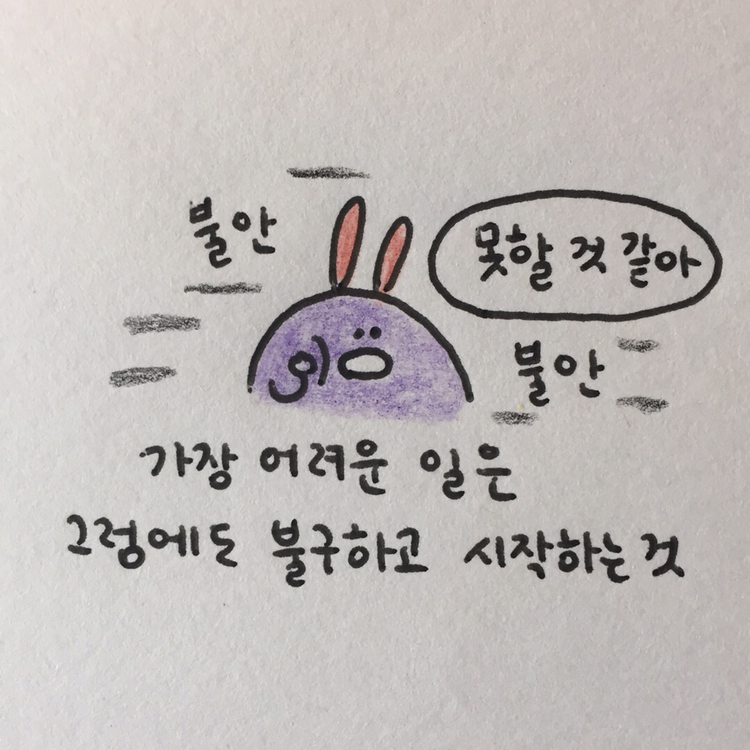 불안
못할 것 같아
불안
가장 어려운 일은
그럼에도 불구하고 시작하는 것